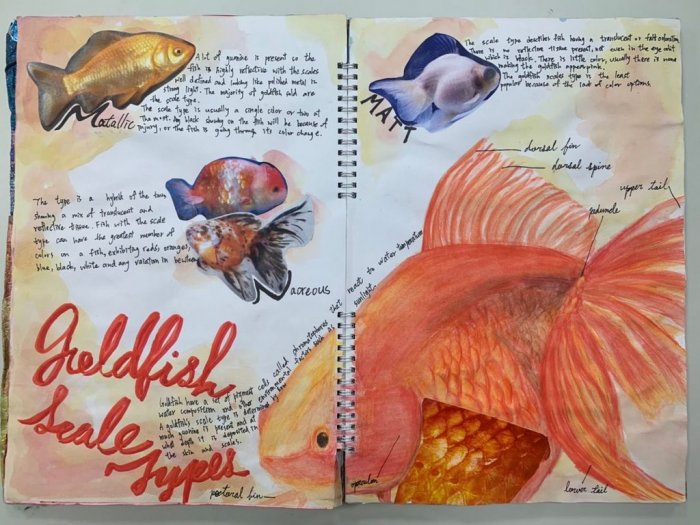 A lot of guanine is present so the
fish is highly reflective with the scales
well defined and looking like polished metal in
strong light. The majority of goldfish sold are
the scale type.
The scale type is usually a single color or two at
the most. Any black showing on the fish will be because of
injury, or the fish is going through its color change.
Matallic
The type is a hybrid of the two,
showing a mix of translucent and
reflective tissue. Fish with the scale
type can have the greatest number of
colors on a fish, exhibiting reds, oranges,
blue, black, white and any variation in between
Nacreous
Goldfish
Scale
Types
Goldfish have a set of pigment cells called chromatophores that react to water temperature
water composition and other environmental factors such as sunlight.
A goldfish's scale type is determined by how
much guanine is present and at
what depth it is deposited in
the skin and scales.
pectoral fin
The scale type describes fish having a translucent or matt coloration.
There is no reflective tissue present, not even in the eye orbit
which is black. There is little color, usually there is none
making the goldfish appear pink.
The goldfish scale type is the least
popular because of the lack of color options.
MATT
dorsal fin
dorsal spine
upper tail
peduncle
operculum
lower tail